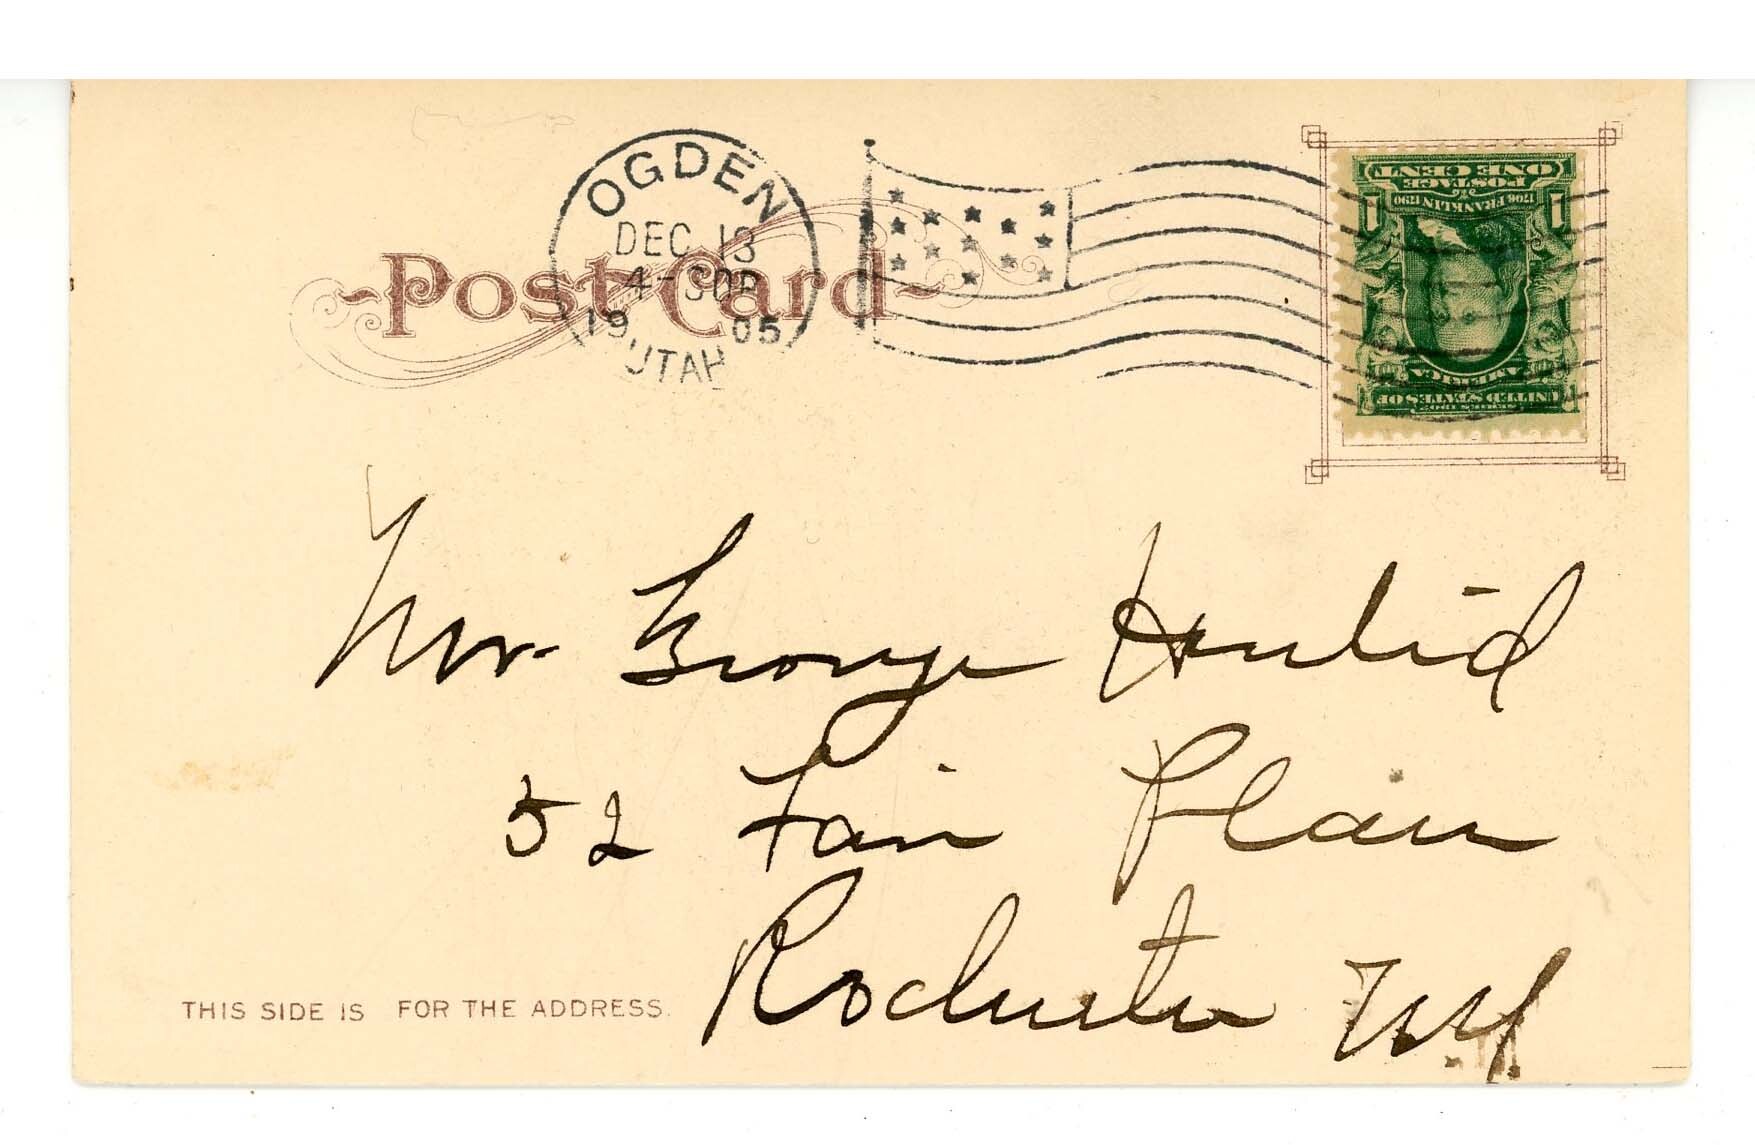 OGDEN
DEC 13
4-30P
1905
UTAH
Post Card
ONE CENT
POSTAGE
1706 FRANKLIN 1790
1 1
AMERICA
UNITED STATES OF
SERIES 1902
Mr. George
52 Fair Plain
Rochester NY
THIS SIDE IS FOR THE ADDRESS.